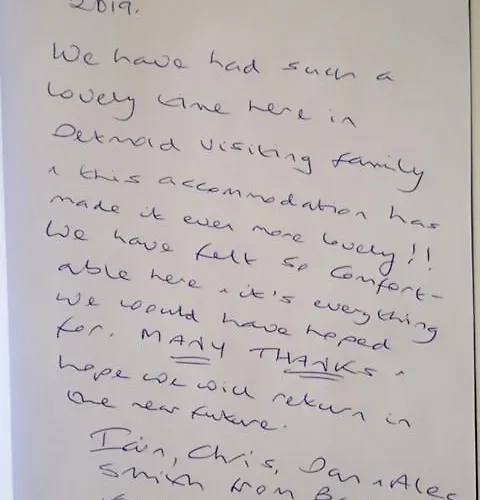 2019.
We have had such a
lovely time here in
Detmold visiting family
+ this accommodation has
made it even more lovely!!
We have felt so comfort-
able here + it's everything
we would have hoped
for. MANY THANKS +
hope we will return in
the near future.
Iain, Chris, Dan + Alec
Smith from